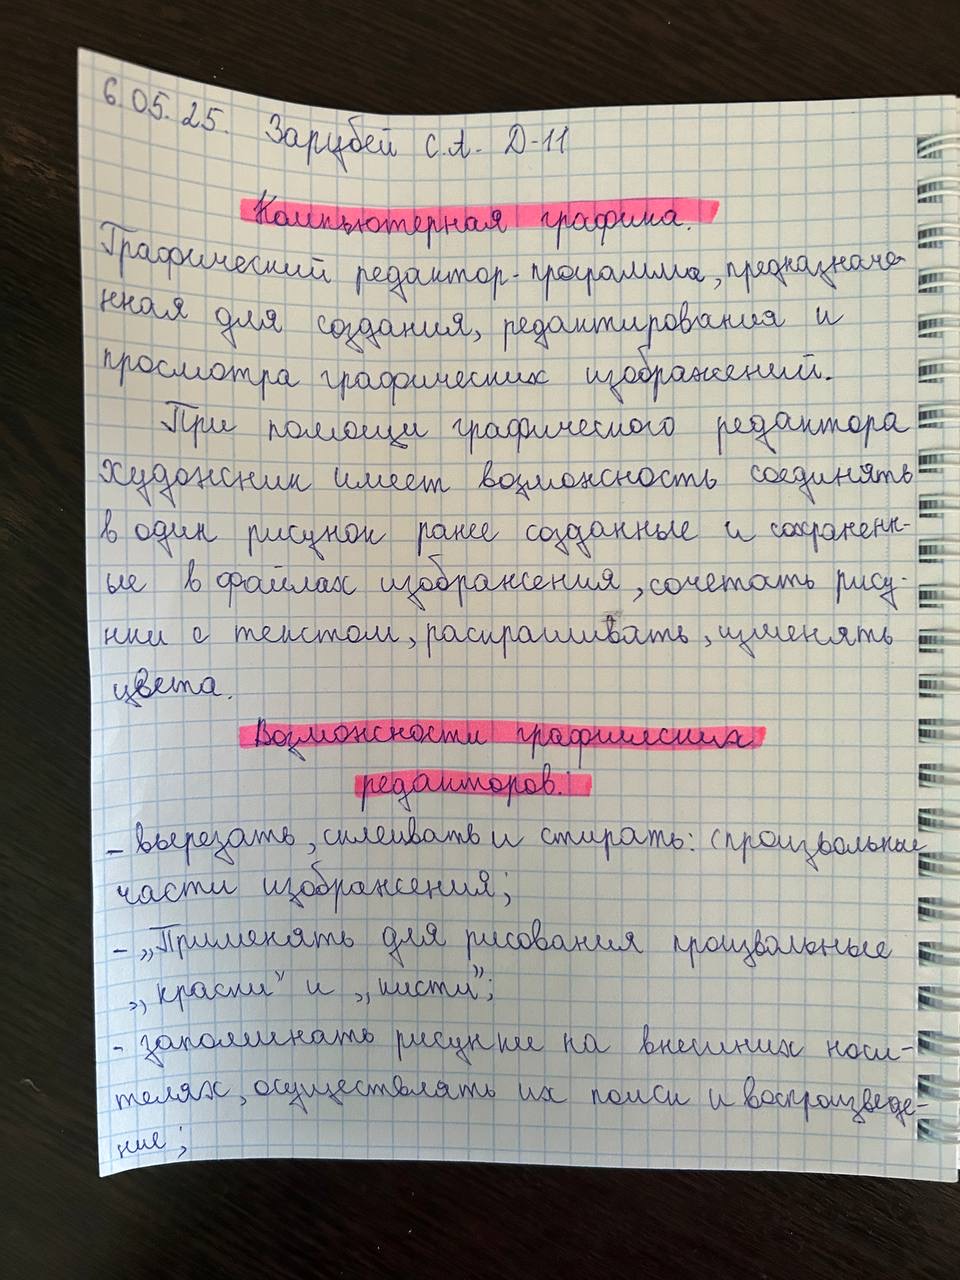 6.05.25. Зарубей С.А. Д-11
Компьютерная графика.
Графический редактор-программа, предназначе-
нная для создания, редактирования и
просмотра графических изображений.
При помощи графического редактора
художник имеет возможность соединять
в один рисунок ранее созданные и сохраненн-
ые в файлах изображения, сочетать рису-
нки с текстом, раскрашивать, изменять
цвета.
Возможности графических
редакторов:
- вырезать, склеивать и стирать: (произвольные
части изображения;
- „Применять для рисования произвольные
„краски" и „кисти";
- запоминать рисунки на внешних носи-
телях, осуществлять их поиск и воспроизведе-
ние;